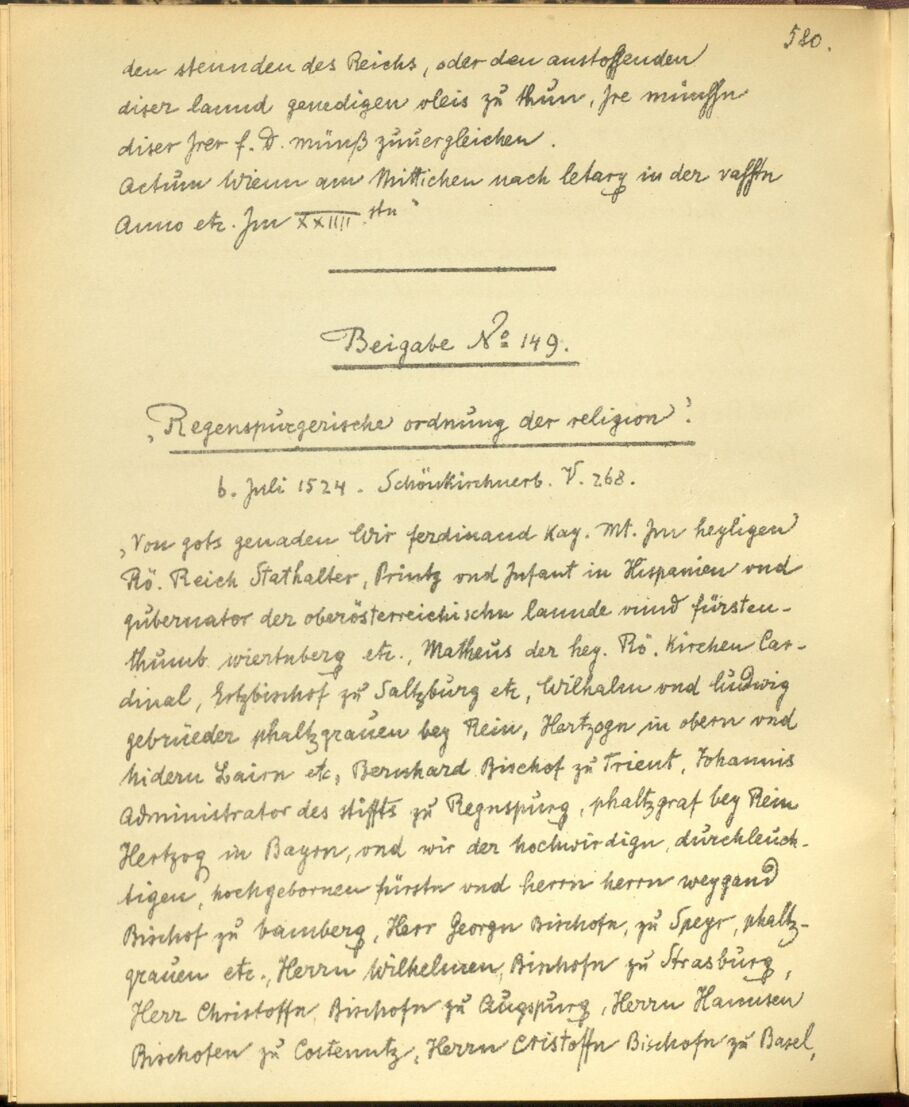 580.
den stennden des Reichs, oder den anstossenden
diser lannd genedigen vleis zu thun, Jre münssn
diser Jrer f. D. münß zuuergleichen.
Actum Wienn am Mittichen nach letarg in der vasstn
Anno etc. Jm XXIIII stn"
Beigabe No 149.
„Regenspurgerische ordnung der religion".
6. Juli 1524. Schönkirchnerb. V. 268.
„Von gots genaden Wir ferdinand Kay. Mt. Jm heyligen
Rö. Reich Stathalter, Printz vnd Jnfant in Hispanien vnd
gubernator der oberösterreichischn lannde vnnd fürsten-
thumb wiertnberg etc., Matheus der hey. Rö. Kirchen Car-
dinal, Ertzbischof zu Saltzburg etc, Wilhalm vnd ludwig
gebrüeder phaltzgrauen bey Rein, Hertzogn in obern vnd
nidern Bairn etc, Bernhard Bischof zu Trient, Johannis
Administrator des stiffts zu Regnspurg, phaltzgraf bey Rein
Hertzog in Bayrn, vnd wir der hochwirdign, durchleuch-
tigen, hochgebornen fürstn vnd herrn herrn weygand
Bischof zu bamberg, Herr Georgn Bischofn, zu Speyr, phaltz-
grauen etc., Herrn Wilhelmen, Bischofn zu Strasburg,
Herr Christoffn Bischofn zu Augspurg, Herrn Hannsen
Bischofen zu Costenntz, Herrn Cristoffn Bischofn zu Basel,